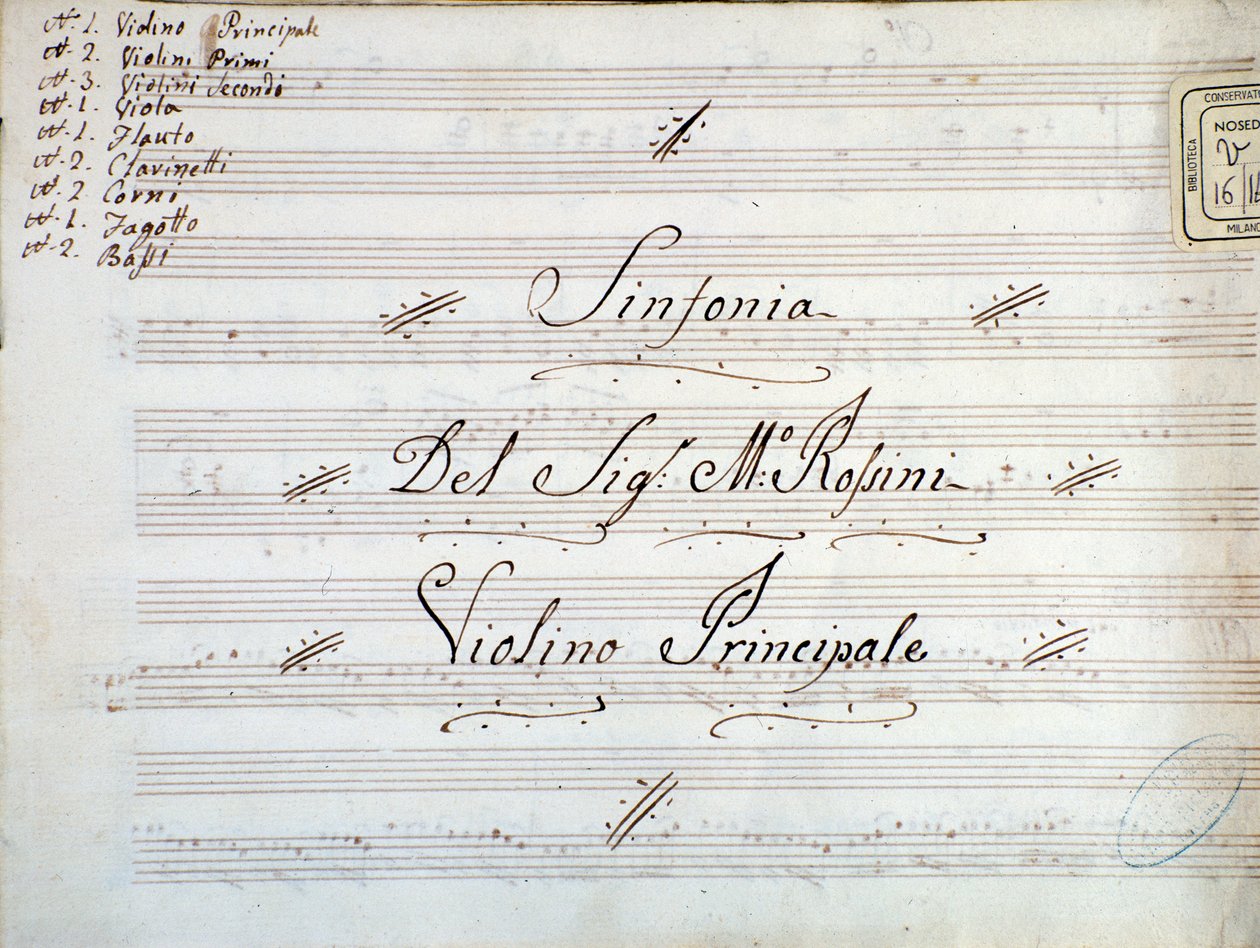 N. 1. Violino Principale
N. 2. Violini Primi
N. 3. Violini Secondi
N. 1. Viola
N. 1. Flauto
N. 2. Clarinetti
N. 2 Corni
N. 1. Fagotto
N. 2. Baſsi
CONSERVATO
BIBLIOTECA
NOSED
V
16/1
MILANO
Sinfonia
Del Sigr: Mo: Roſsini
Violino Principale